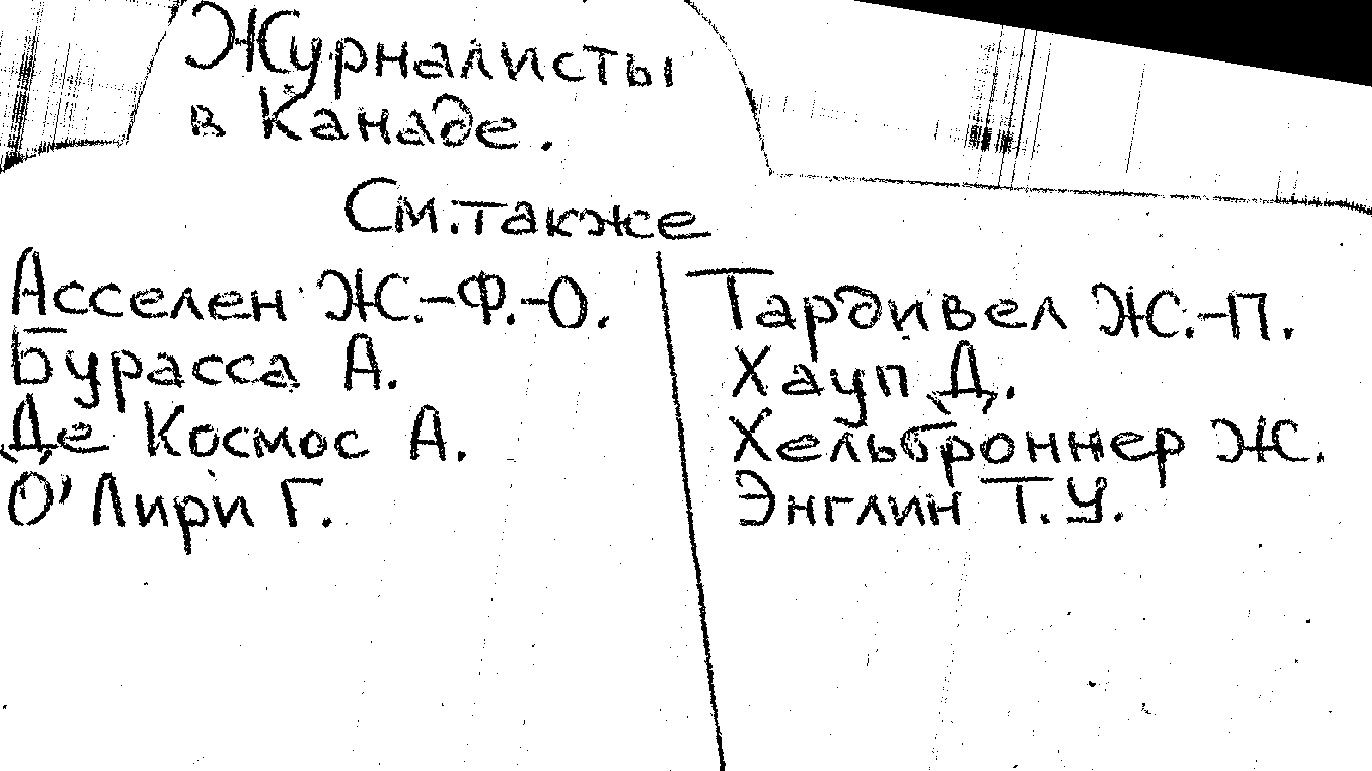 Журналисты
в Канаде.
См. также
Асселен Ж.-Ф.-О.
Бурасса А.
Де Космос А.
О'Лири Г.
Тардивел Ж.-П.
Хауп Д.
Хельброннер Ж.
Энглин Т.У.